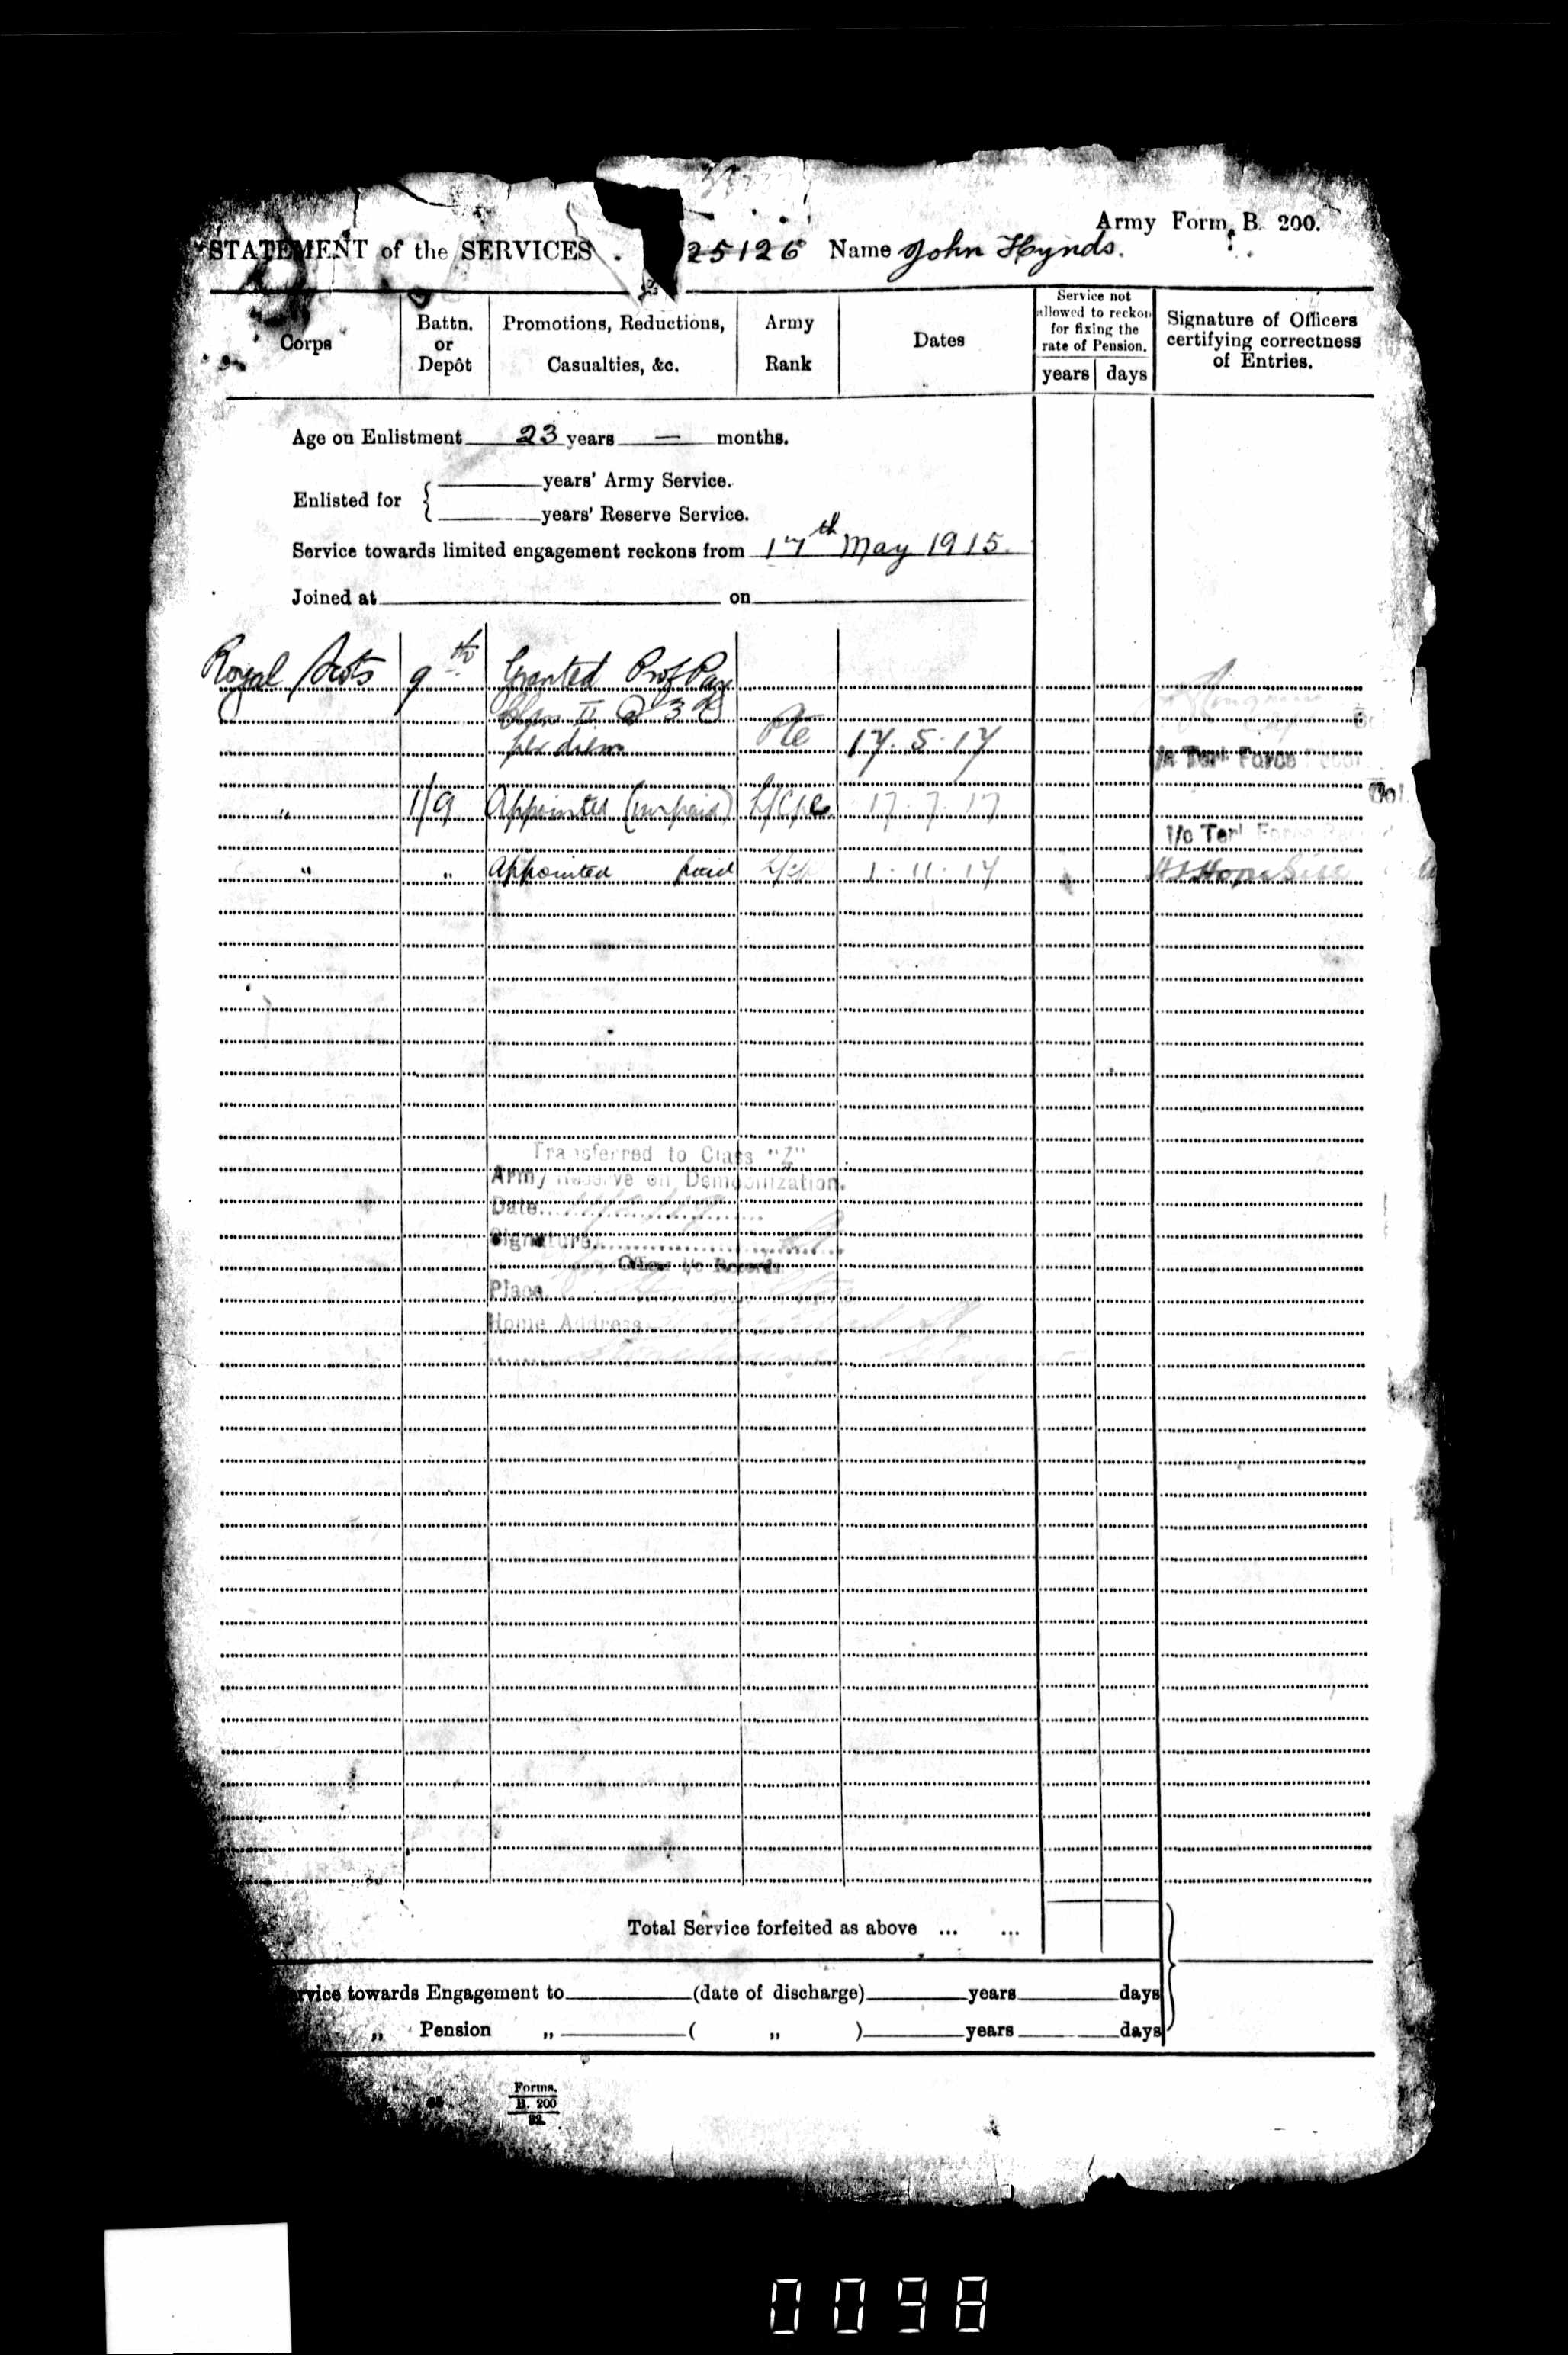 Army Form B. 200.
STATEMENT of the SERVICES 25126 Name John Hynds.
Corps
Battn. or Depôt
Promotions, Reductions, Casualties, &c.
Army Rank
Dates
Service not allowed to reckon for fixing the rate of Pension.
years days
Signature of Officers certifying correctness of Entries.
Age on Enlistment 23 years — months.
Enlisted for
years' Army Service.
years' Reserve Service.
Service towards limited engagement reckons from 17th May 1915.
Joined at on
Royal Scots 9th Granted Prof Pay
Class II @ 3d
per diem Pte 17.5.17
i/c Terl. Force
" 1/9 Appointed (unpaid) L/Cpl. 17.7.17
Col.
i/c Terl Force
" " Appointed paid 1.11.17
Transferred to Class "Z"
Army Reserve on Demobilization.
Date
Signature
Officer i/c Records
Place
Home Address
Total Service forfeited as above ... ...
rvice towards Engagement to (date of discharge) years days
„ Pension „ ( „ ) years days
Forms.
B. 200
0098